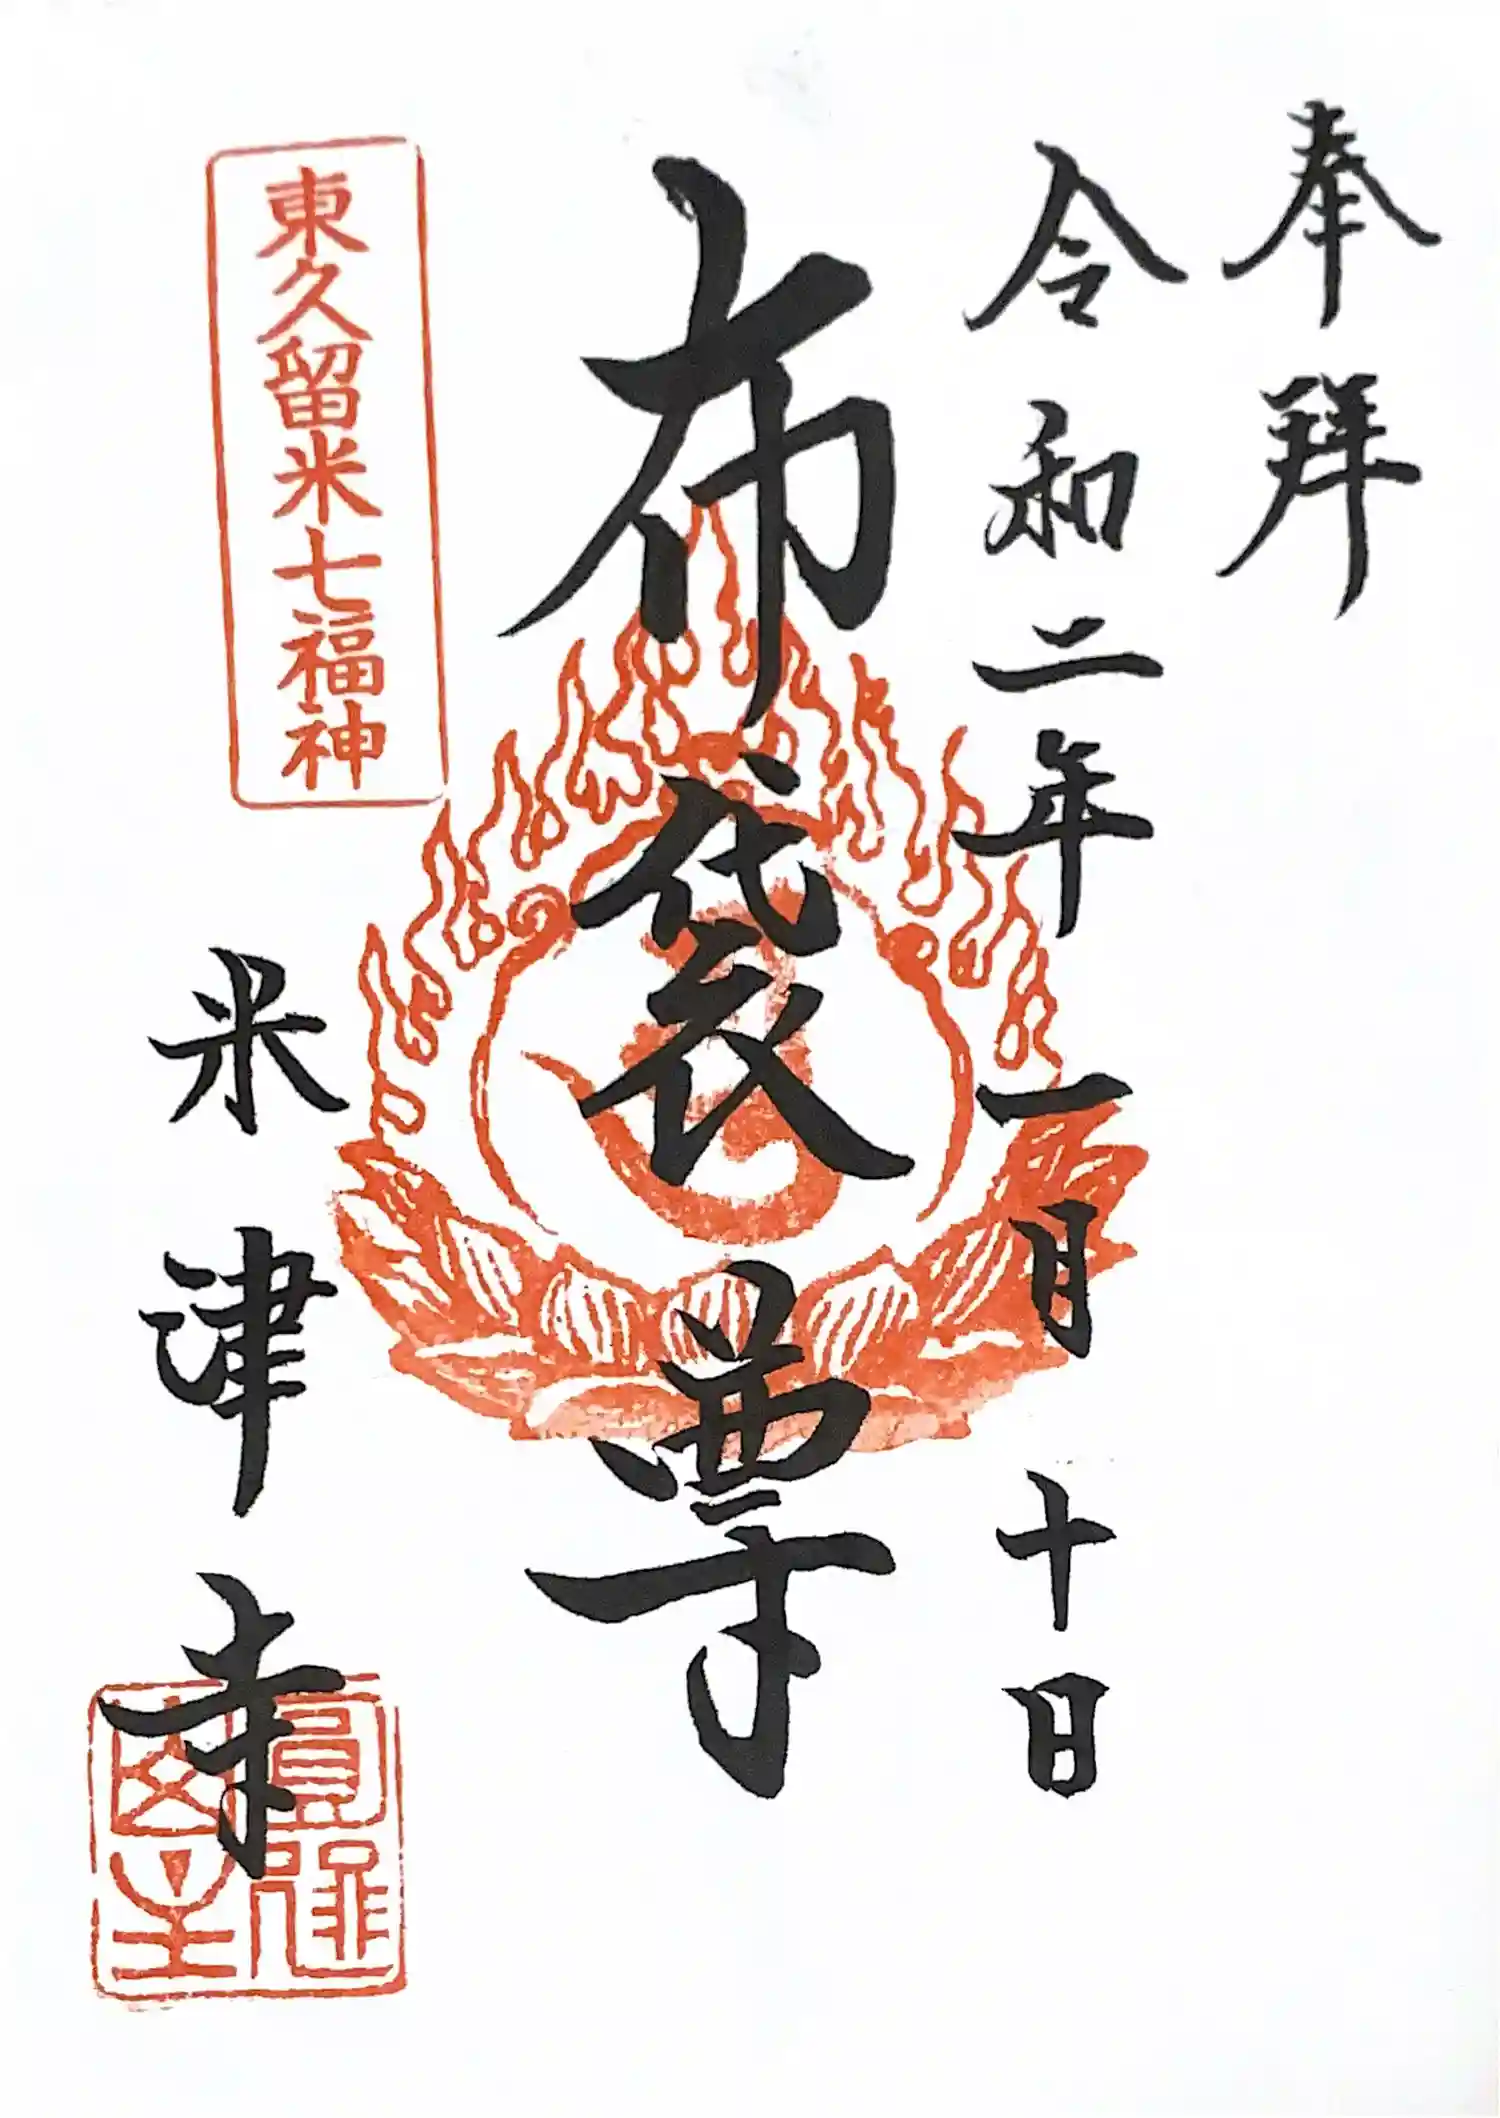 奉拜
令和二年一月十日
布袋尊
東久留米七福神
米津寺